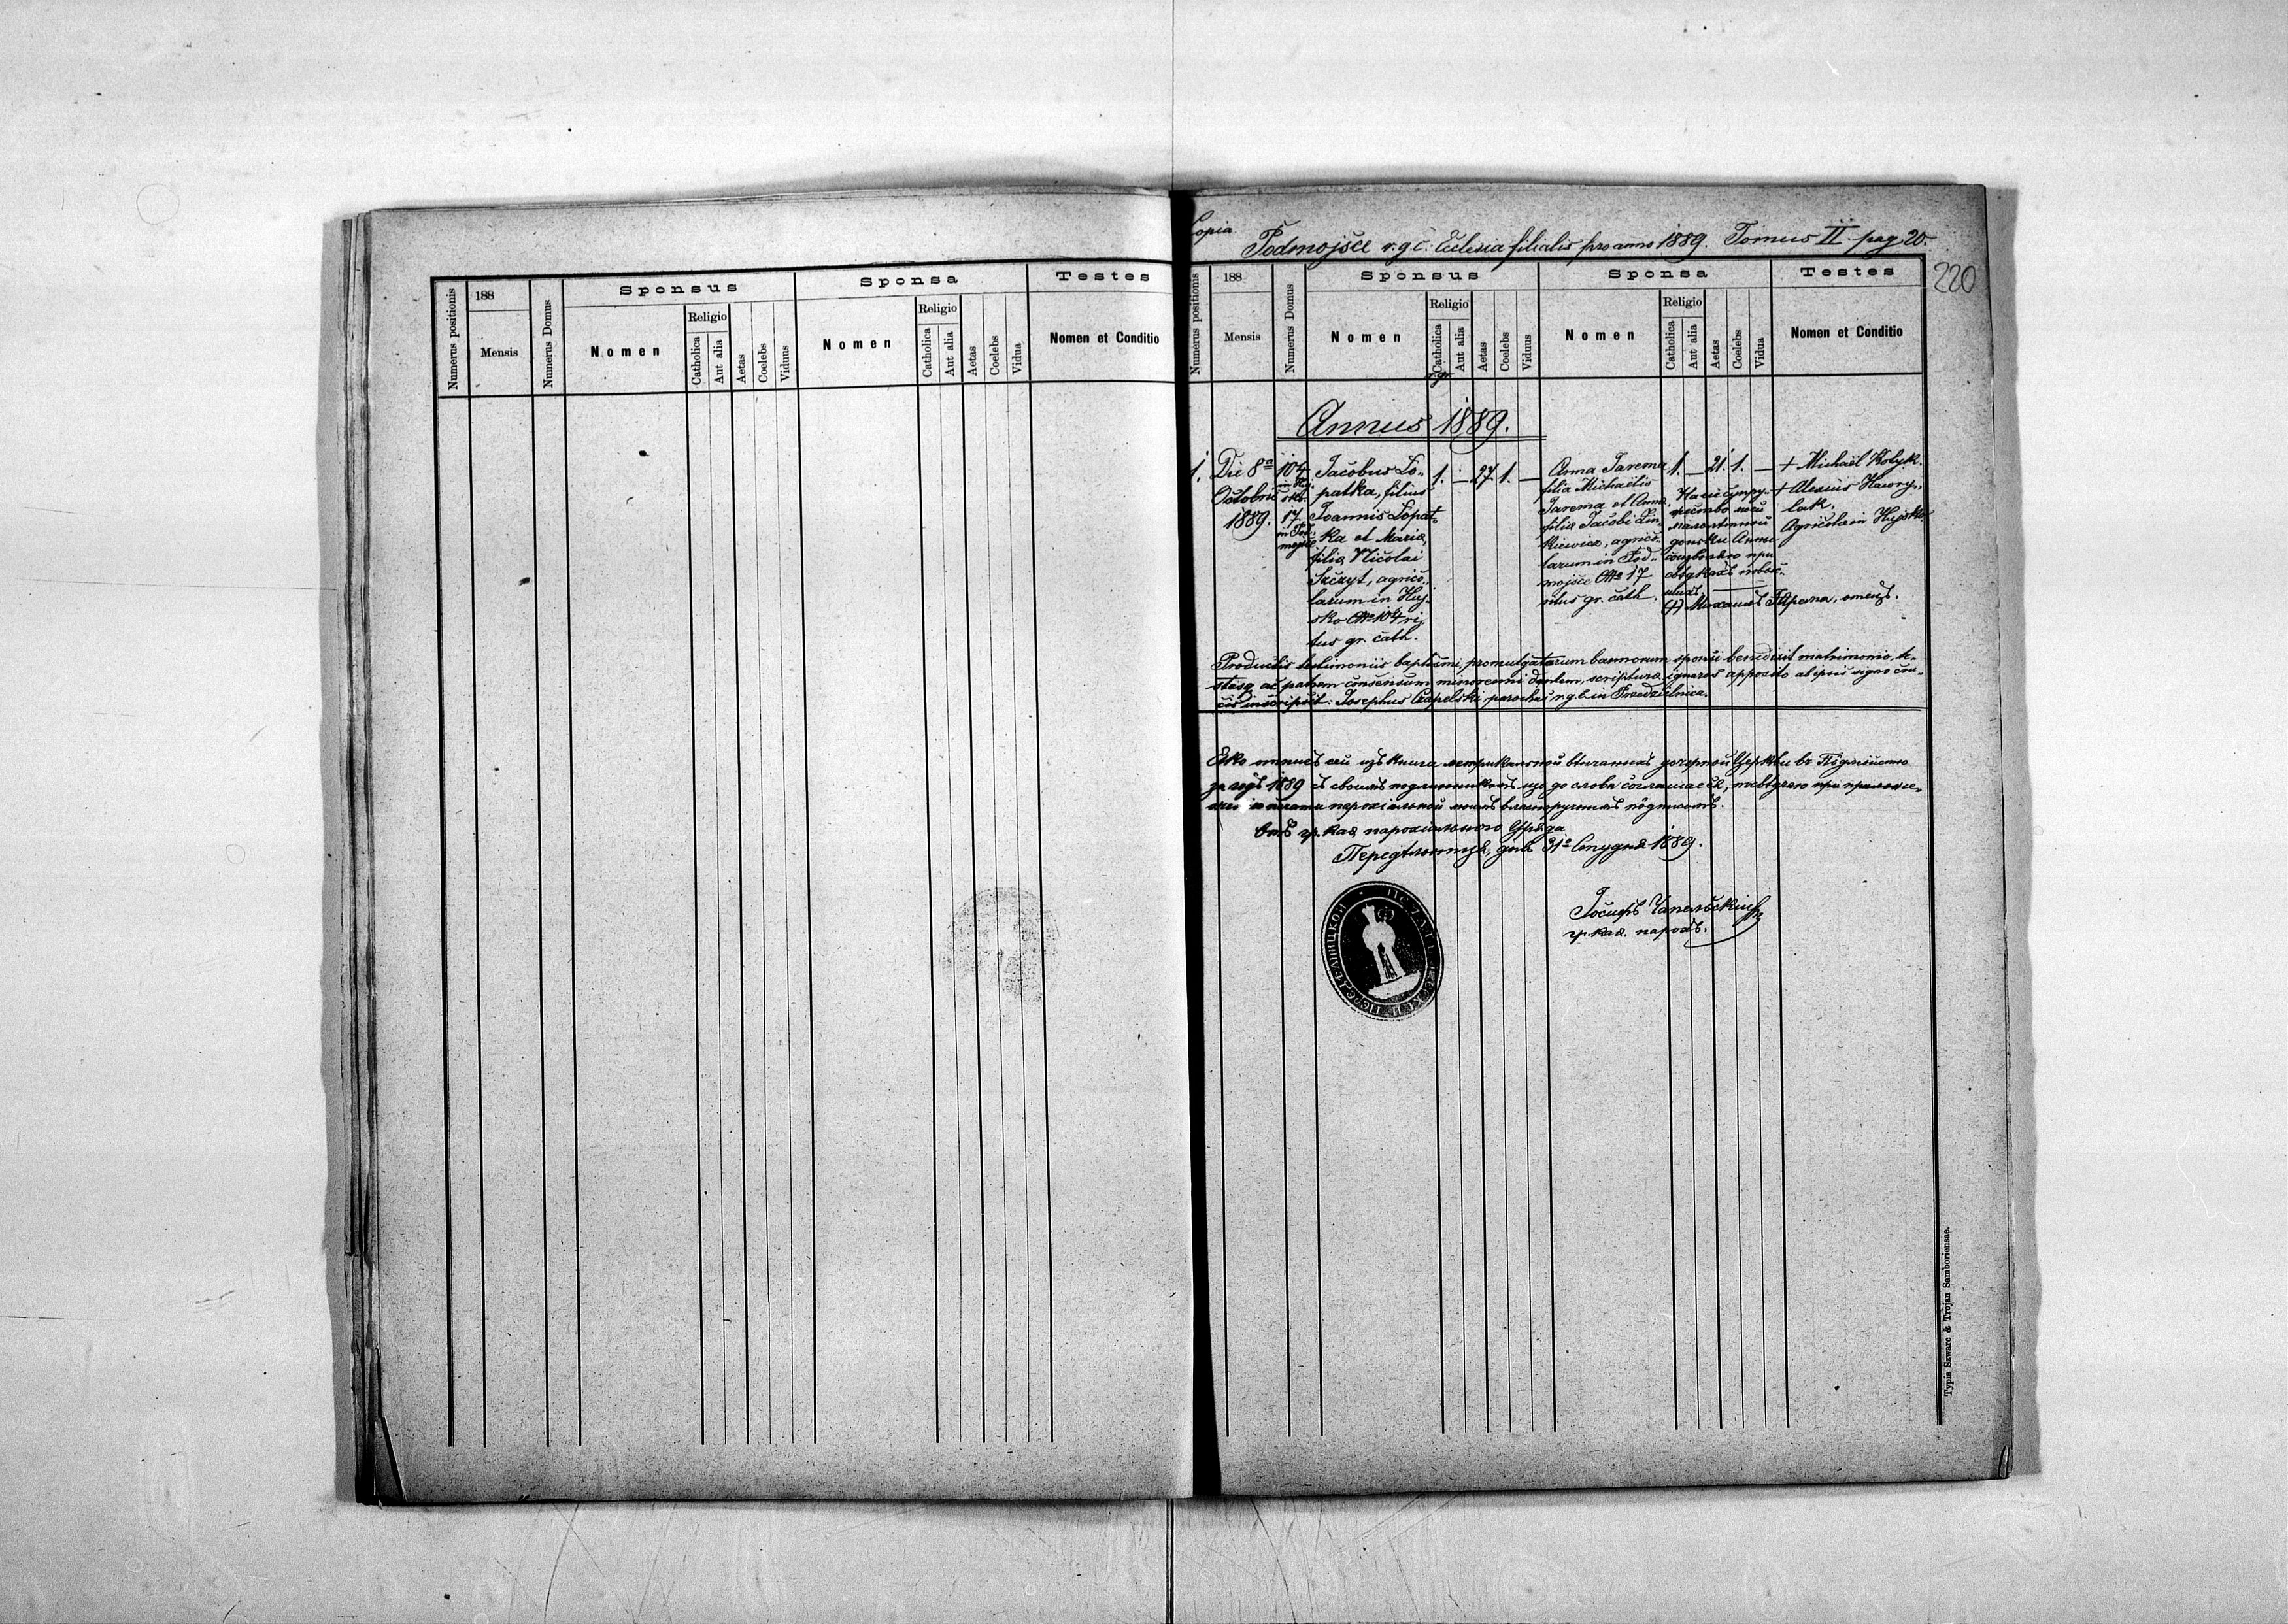 Numerus positionis
188
Mensis
Numerus Domus
Sponsus
Nomen
Religio
Catholica
Aut alia
Aetas
Coelebs
Viduus
Sponsa
Nomen
Religio
Catholica
Aut alia
Aetas
Coelebs
Vidua
Testes
Nomen et Conditio
Copia
Podmojsce r.g.c. Ecclesia filialis pro anno 1889. Tomus II. pag. 20.
220
Numerus positionis
188
Mensis
Numerus Domus
Sponsus
Nomen
Religio
Catholica
r.gr.
Aut alia
Aetas
Coelebs
Viduus
Sponsa
Nomen
Religio
Catholica
Aut alia
Aetas
Coelebs
Vidua
Testes
Nomen et Conditio
Annus 1889.
1.
Die 8ª
Octobris
1889.
104
in Huj-
sko.
17.
in Pod-
mojsce
Jacobus Lo-
patka, filius
Joannis Lopat-
ka et Mariæ,
filiæ Nicolai
Szczyt, agrico-
larum in Huj-
sko № 104 ri-
tus gr. cath.
1. — 27. 1. —
Anna Jarema
filia Michaëlis
Jarema et Annæ
filiæ Jacobi
kiewicz, agrico-
larum in Pod-
mojsce № 17
ritus gr. cath.
1. — 21. 1. —
малолѣтной
донськи Анны
(†) Михаилъ Ярема, отецъ.
+ Michaël Kolyk.
+ Alexius Hawry-
lak.
Agricolæ in Hujsko
Productis testimoniis baptismi, promulgatarum bannorum sponsi benedixit matrimonio, te-
stesq. ac patrem consensum minorenni dantem, scripturæ ignaros apposito ab ipsis signo cru-
cis inscripsit: Josephus Czapelski, parochus r.g.c. in Przedzielnica.
Яко отписъ сей изъ книги метрикальной вѣнчаныхъ дочерной Церкви въ
за годъ 1889 съ своимъ подлинникомъ що до слова соглашаеся, потвердаю при приложе-
печати парохіяльной моимъ власноручнымъ подписомъ.
Отъ гр. каѳ. парохіяльного Уряда
Передѣльница, дня 31º Студня 1889.
Іосифъ Чапельскій
гр. каѳ. парохъ.
Typis Szwarc & Trojan Samboriensae.